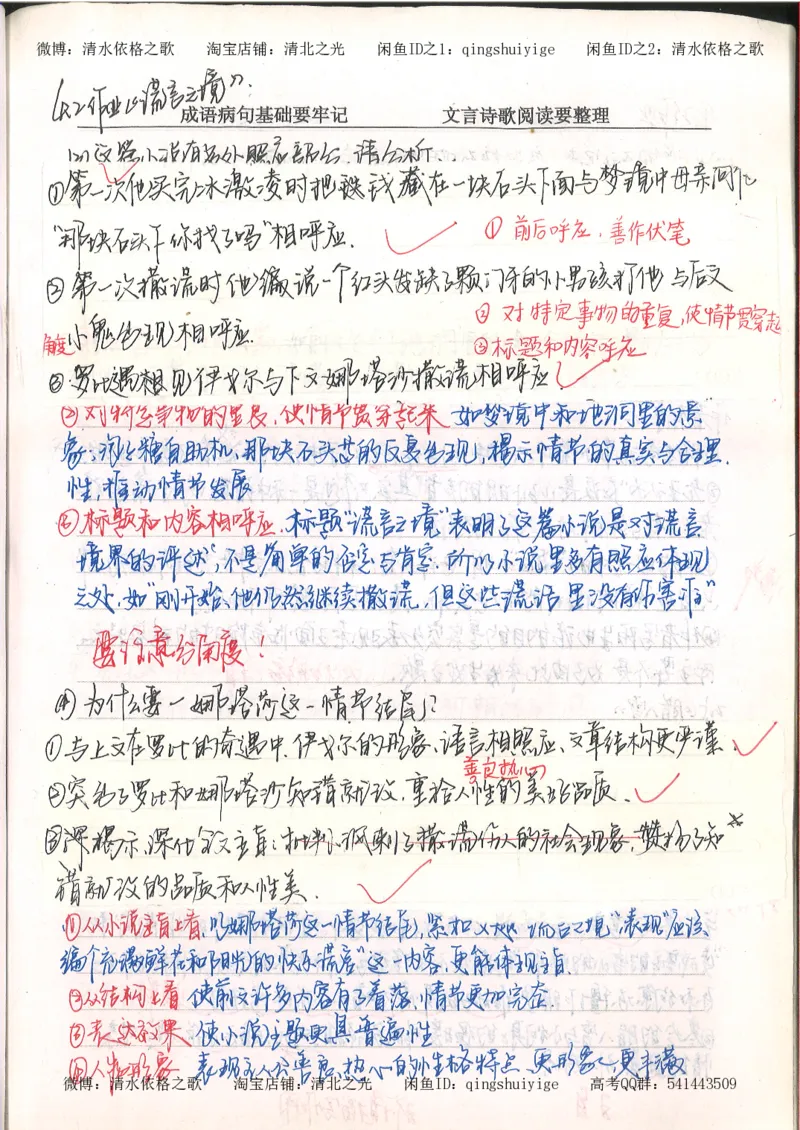 微博：清水依格之歌 淘宝店铺：清北之光 闲鱼ID之1：qingshuiyige 闲鱼ID之2：清水依格之歌
作业《谎言之境》
成语病句基础要牢记 文言诗歌阅读要整理
这篇小说有多处照应部分，请分析
①第一次他买完冰激凌时把硬钱藏在一块石头下面与梦境中母亲问他
"那块石头下你找了吗"相呼应.
①前后呼应，善作伏笔
②第一次撒谎时他编说一个红头发缺了颗门牙的小男孩打他与后文
②对特定事物的重复，使情节贯穿起
角度 小鬼出现相呼应.
③标题和内容呼应
③罗比遇相见伊戈尔与下文娜塔莎撒谎相呼应.
②对特定事物的重复，使情节贯穿起来 如梦境中和地洞里的景
象，泡泡糖自助机，那块石头等的反复出现，揭示情节的真实与合理
性，推动情节发展
③标题和内容相呼应，标题"谎言之境"表明了这篇小说是对谎言
境界的评述，不是简单的否定与肯定，所以小说里多有照应体现
之处，如"刚开始，他仍然继续撒谎，但这些谎话里没有伤害谁"
要注意分角度！
(4)为什么要一娜塔莎这一情节结尾？
①与上文在罗比的奇遇中，伊戈尔的形象、语言相照应、文章结构更严谨.
善良热心
②突出了罗比和娜塔莎知错就改，重拾人性的美好品质.
③深揭示，深化全文主旨：批判、讽刺了撒谎伤人的社会现象，赞扬了知
错就改的品质和人性美.
①从小说主旨上看，以娜塔莎这一情节结尾，紧扣文题"谎言之境"，表现"应该
编个充满鲜花和阳光的快乐谎言"这一内容，更能体现主旨.
②从结构上看 使前文许多内容有了着落，情节更加完整.
③表达效果 使小说主题更具普遍性
④人物形象 表现主人公善良，热心的性格特点，更形象，更丰满
微博：清水依格之歌 淘宝店铺：清北之光 闲鱼ID：qingshuiyige 高考QQ群：541443509